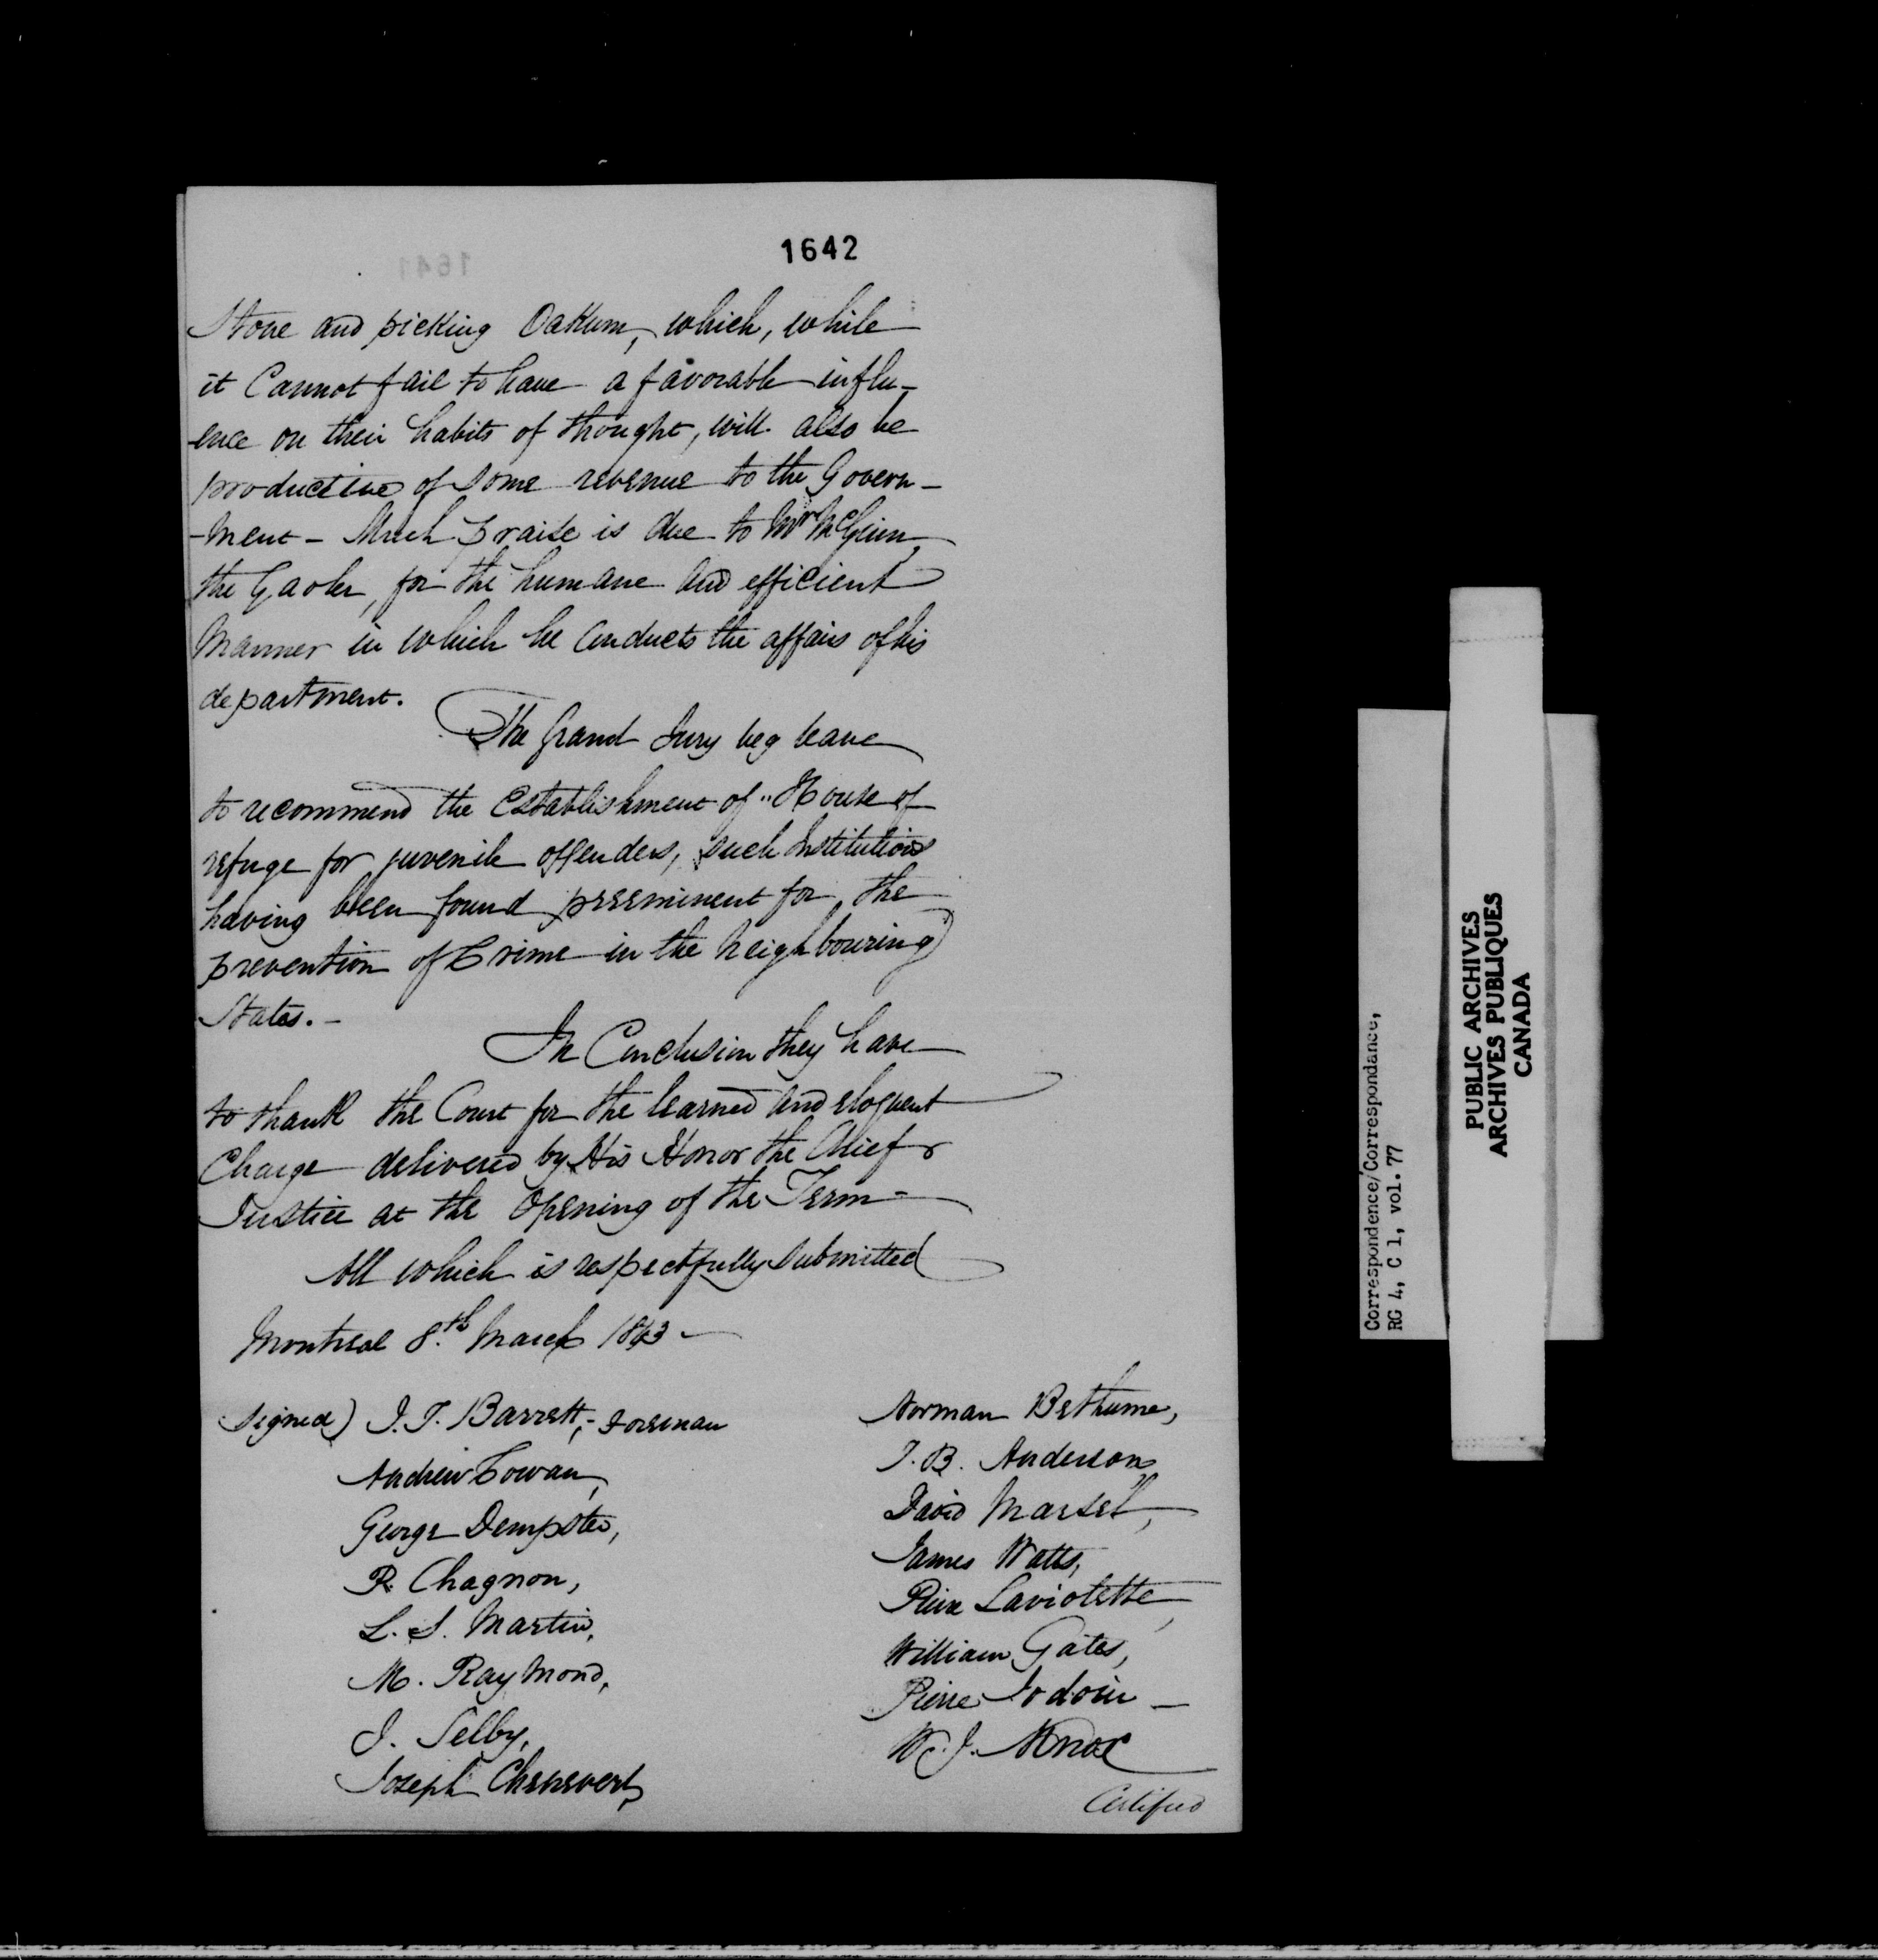 1642
1641
Stone and picking Oakum, which, while
it Cannot fail to have a favorable influ-
-ence on their habits of thought, will also be
productive of Some revenue to the Govern-
-ment - Much praise is due to Mr McGinn,
the Gaoler, for the humane and efficient
Manner in which he Conducts the affairs of his
department.
The Grand Jury beg leave
to recommend the Establishment of "House of
refuge for juvenile offenders, such Institutions
having been found preeminent for the
prevention of Crime in the Neighbouring
States. -
In Conclusion they have
to thank the Court for the learned and eloquent
Charge delivered by His Honor the Chief
Justice at the Opening of the Term -
All which is respectfully Submitted
Montreal 8.th March 1843 -
Signed) J. T. Barrett, - Foreman
Andrew Cowan,
George Dempster,
R. Chagnon,
L. S. Martin,
M. Raymond,
J. Selby,
Joseph Chenevert,
Norman Bethune,
T. B. Anderson
David
James Watts,
Pierre Laviolette,
William Gates,
Pierre Jodoin -
W. J. Knox
Certified
Correspondence/Correspondance,
RG 4, C 1, vol. 77
PUBLIC ARCHIVES
ARCHIVES PUBLIQUES
CANADA